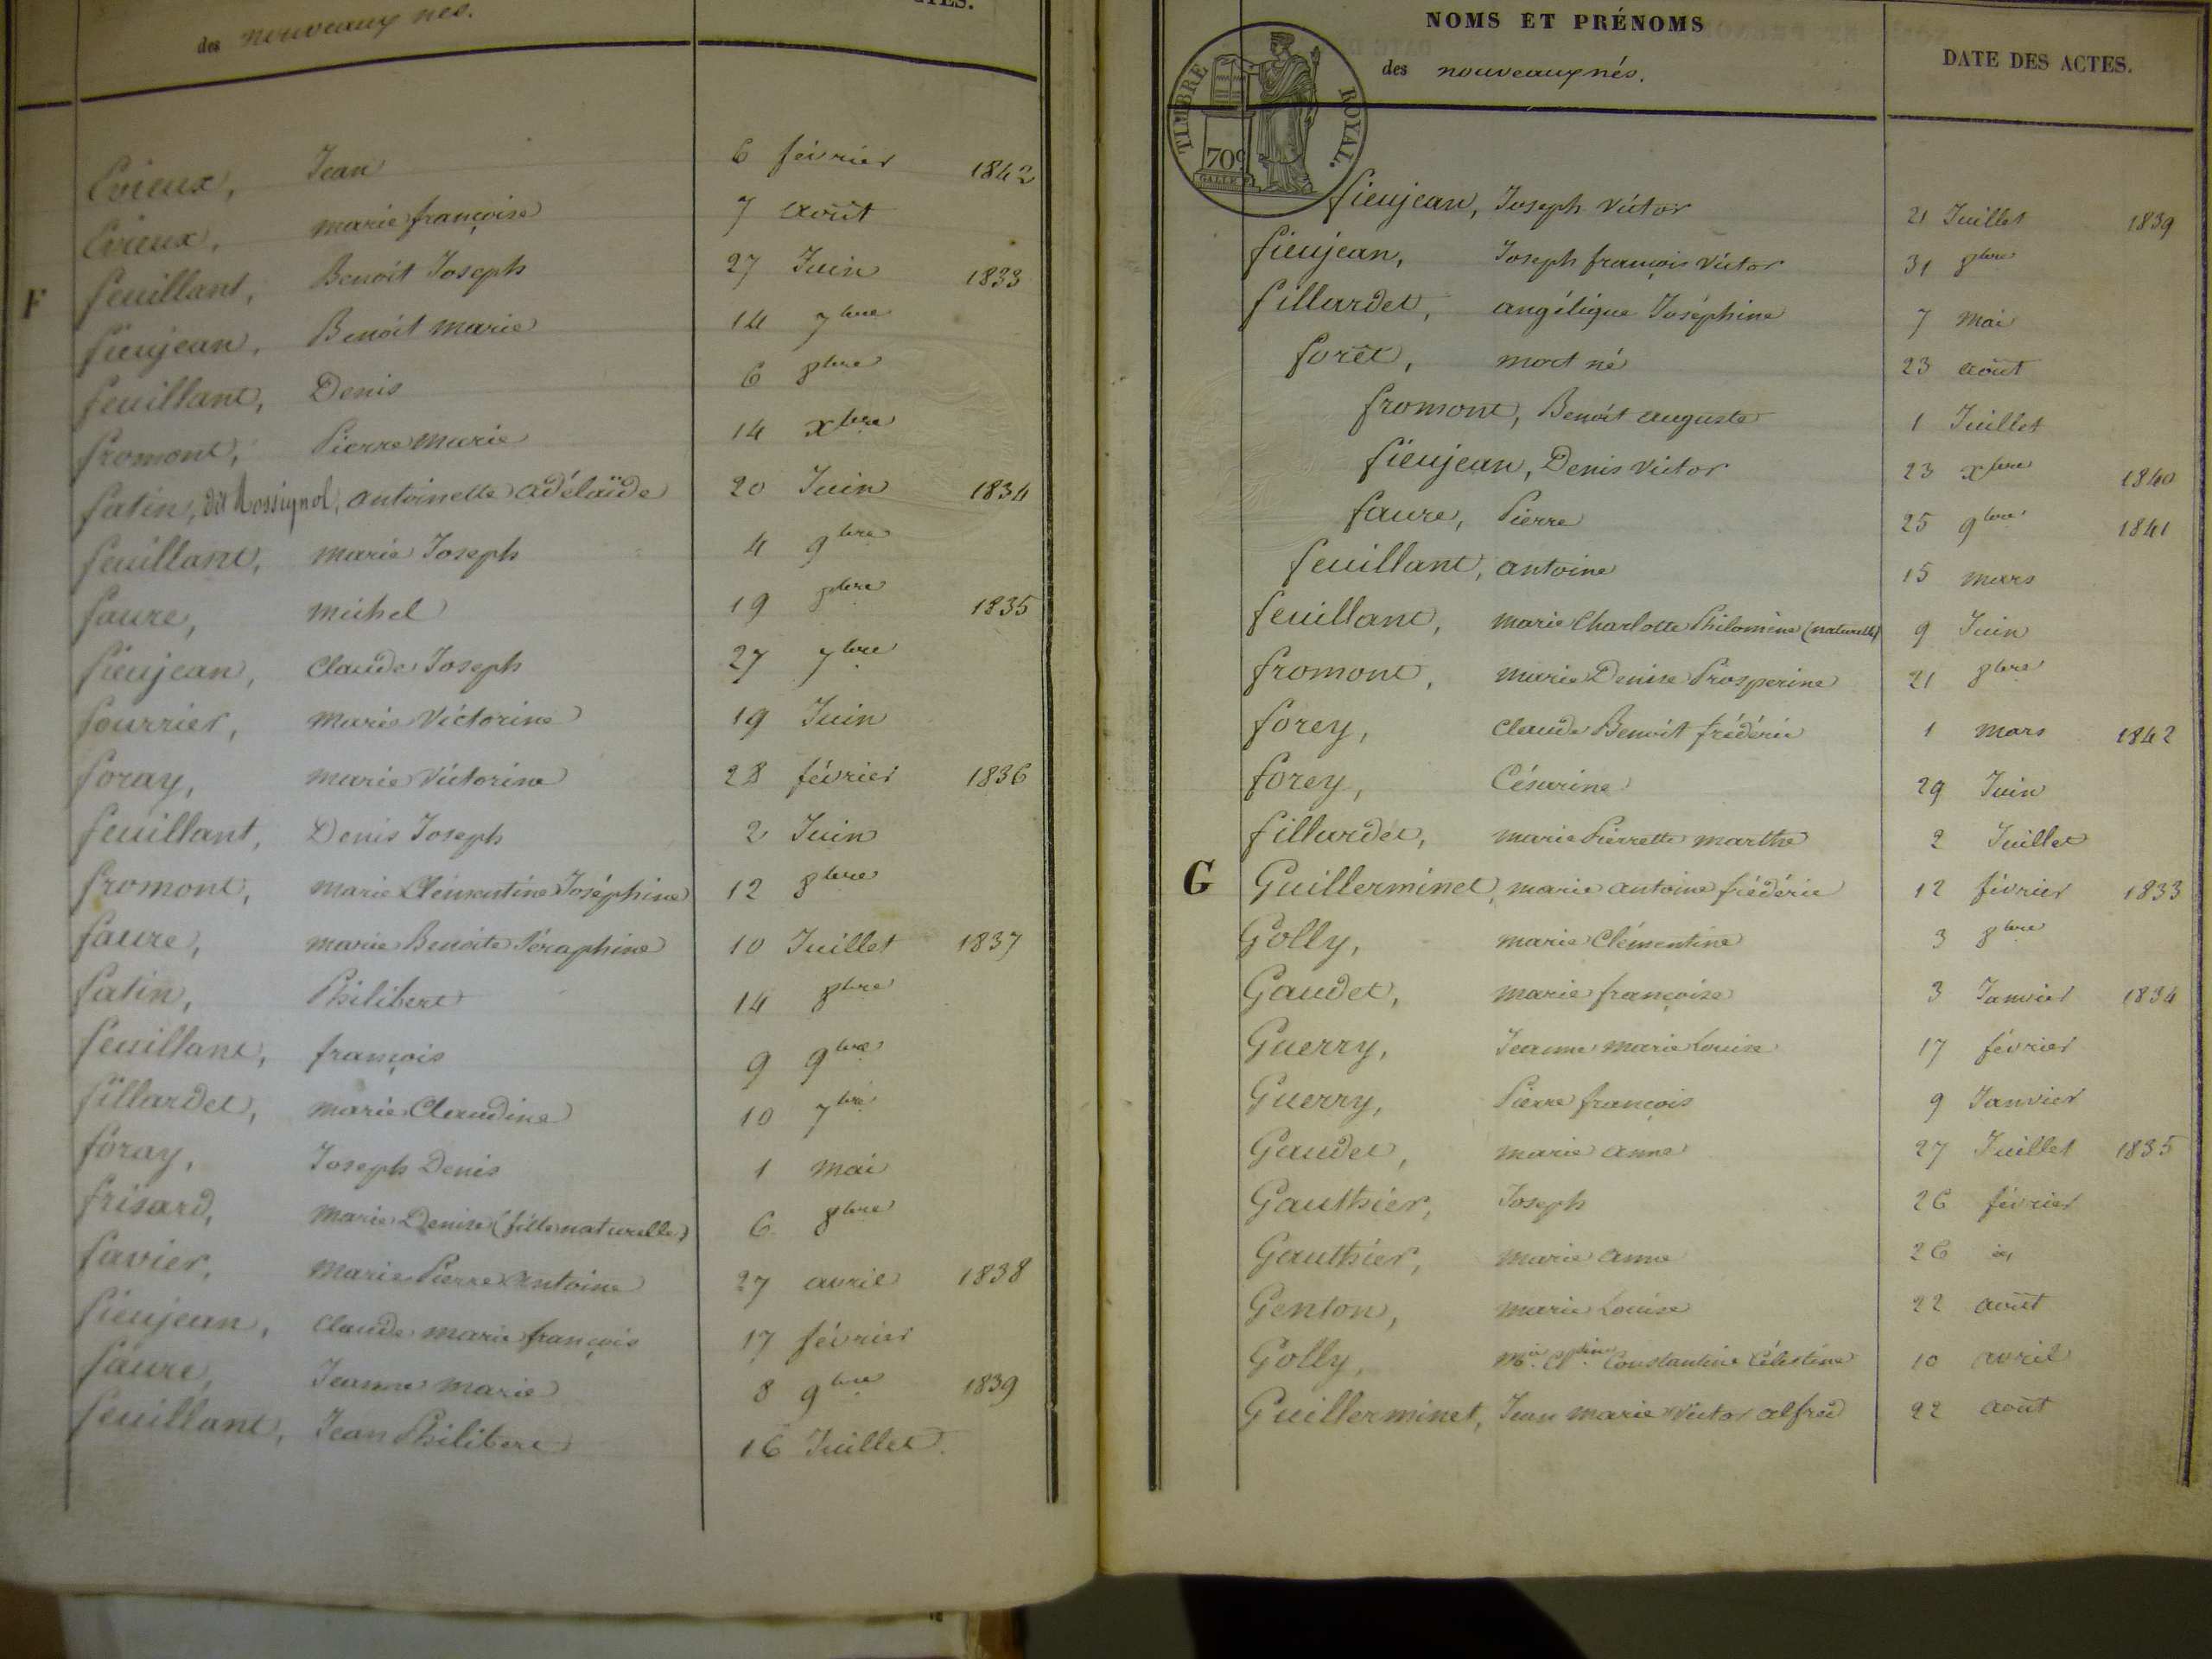 des nouveaux nés.
Evieux, Jean 6 février 1842
Evieux, marie françoise 7 août
F feuillant, Benoit Joseph 27 Juin 1833
fieujean, Benoit marie 14 7bre
feuillant, Denis 6 8bre
fromont, Pierre marie 14 xbre
fatin, dit Rossignol, antoinette adélaïde 20 Juin 1834
feuillant, marie Joseph 4 9bre
faure, michel 19 8bre 1835
fieujean, Claude Joseph 27 7bre
fourrier, marie Victorine 19 Juin
foray, marie Victorine 28 février 1836
feuillant, Denis Joseph 2 Juin
fromont, marie Clémentine Joséphine 12 8bre
faure, marie Benoite Séraphine 10 Juillet 1837
fatin, Philibert 14 8bre
feuillant, françois 9 9bre
fillardet, marie Claudine 10 7bre
foray, Joseph Denis 1 mai
frisard, marie Denise (fille naturelle) 6 8bre
favier, marie Pierre antoine 27 avril 1838
fieujean, Claude marie françois 17 février
faure, Jeanne marie 8 9bre 1839
feuillant, Jean Philibert 16 Juillet.
NOMS ET PRÉNOMS
des nouveaux nés.
DATE DES ACTES.
TIMBRE ROYAL.
70c
fieujean, Joseph Victor 21 Juillet 1839
fieujean, Joseph françois Victor 31 8bre
fillardet, angélique Joséphine 7 mai
forêt, mort né 23 août
fromont, Benoit auguste 1 Juillet
fieujean, Denis Victor 23 xbre 1840
faure, Pierre 25 9bre 1841
feuillant, antoine 15 mars
feuillant, marie Charlotte Philomène (naturelle) 9 Juin
fromont, marie Denise Prosperine 21 8bre
forey, Claude Benoit frédéric 1 mars 1842
forey, Césarine 29 Juin
fillardet, marie Pierrette marthe 2 Juillet
G Guillerminet, marie antoine frédéric 12 février 1833
Golly, marie Clémentine 3 8bre
Gaudet, marie françoise 3 Janvier 1834
Guerry, Jeanne marie Louise 17 février
Guerry, Pierre françois 9 Janvier
Gaudet, marie anne 27 Juillet 1835
Gauthier, Joseph 26 février
Gauthier, marie anne 26 id
Genton, marie Louise 22 août
Golly, Mie Cltine Constantine Célestine 10 avril
Guillerminet, Jean marie Victor alfred 22 août